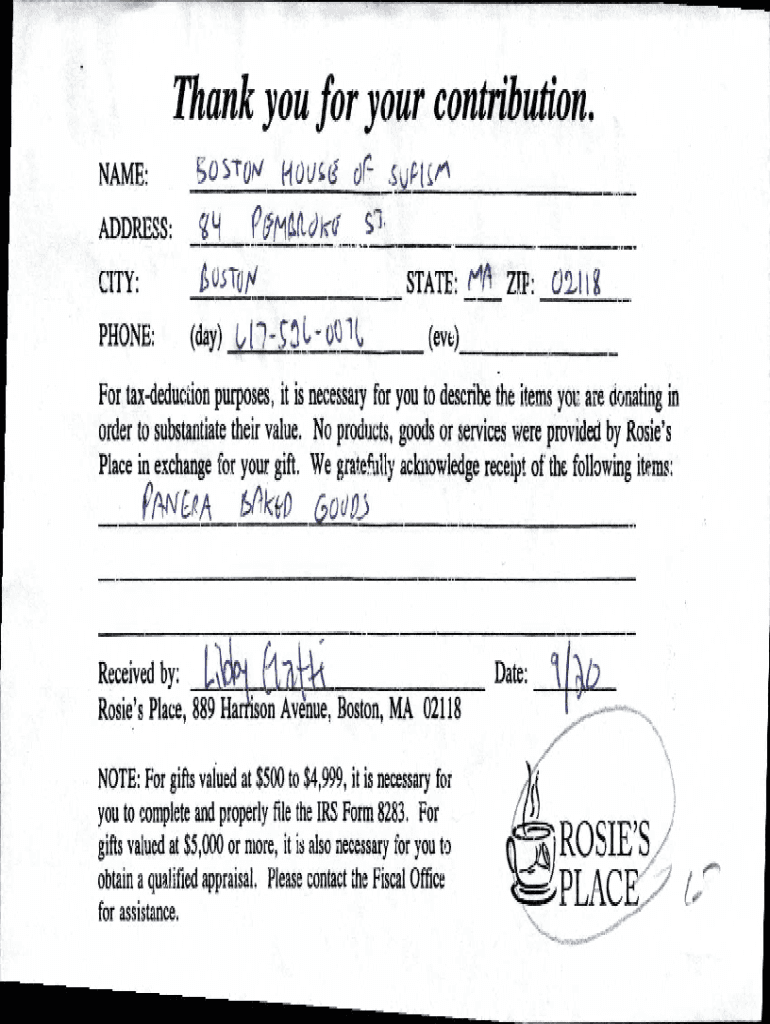 Thank you for your contribution.
NAME: BOSTON HOUSE OF SUFISM
ADDRESS: 84 PEMBROKE ST.
CITY: BOSTON STATE: MA ZIP: 02118
PHONE: (day) (eve)
For tax-deduction purposes, it is necessary for you to describe the items you are donating in
order to substantiate their value. No products, goods or services were provided by Rosie's
Place in exchange for your gift. We gratefully acknowledge receipt of the following items:
PANERA BAKED GOODS
Received by: Libby Date: 9/20
Rosie's Place, 889 Harrison Avenue, Boston, MA 02118
NOTE: For gifts valued at $500 to $4,999, it is necessary for
you to complete and properly file the IRS Form 8283. For
gifts valued at $5,000 or more, it is also necessary for you to
obtain a qualified appraisal. Please contact the Fiscal Office
for assistance.
ROSIE'S
PLACE